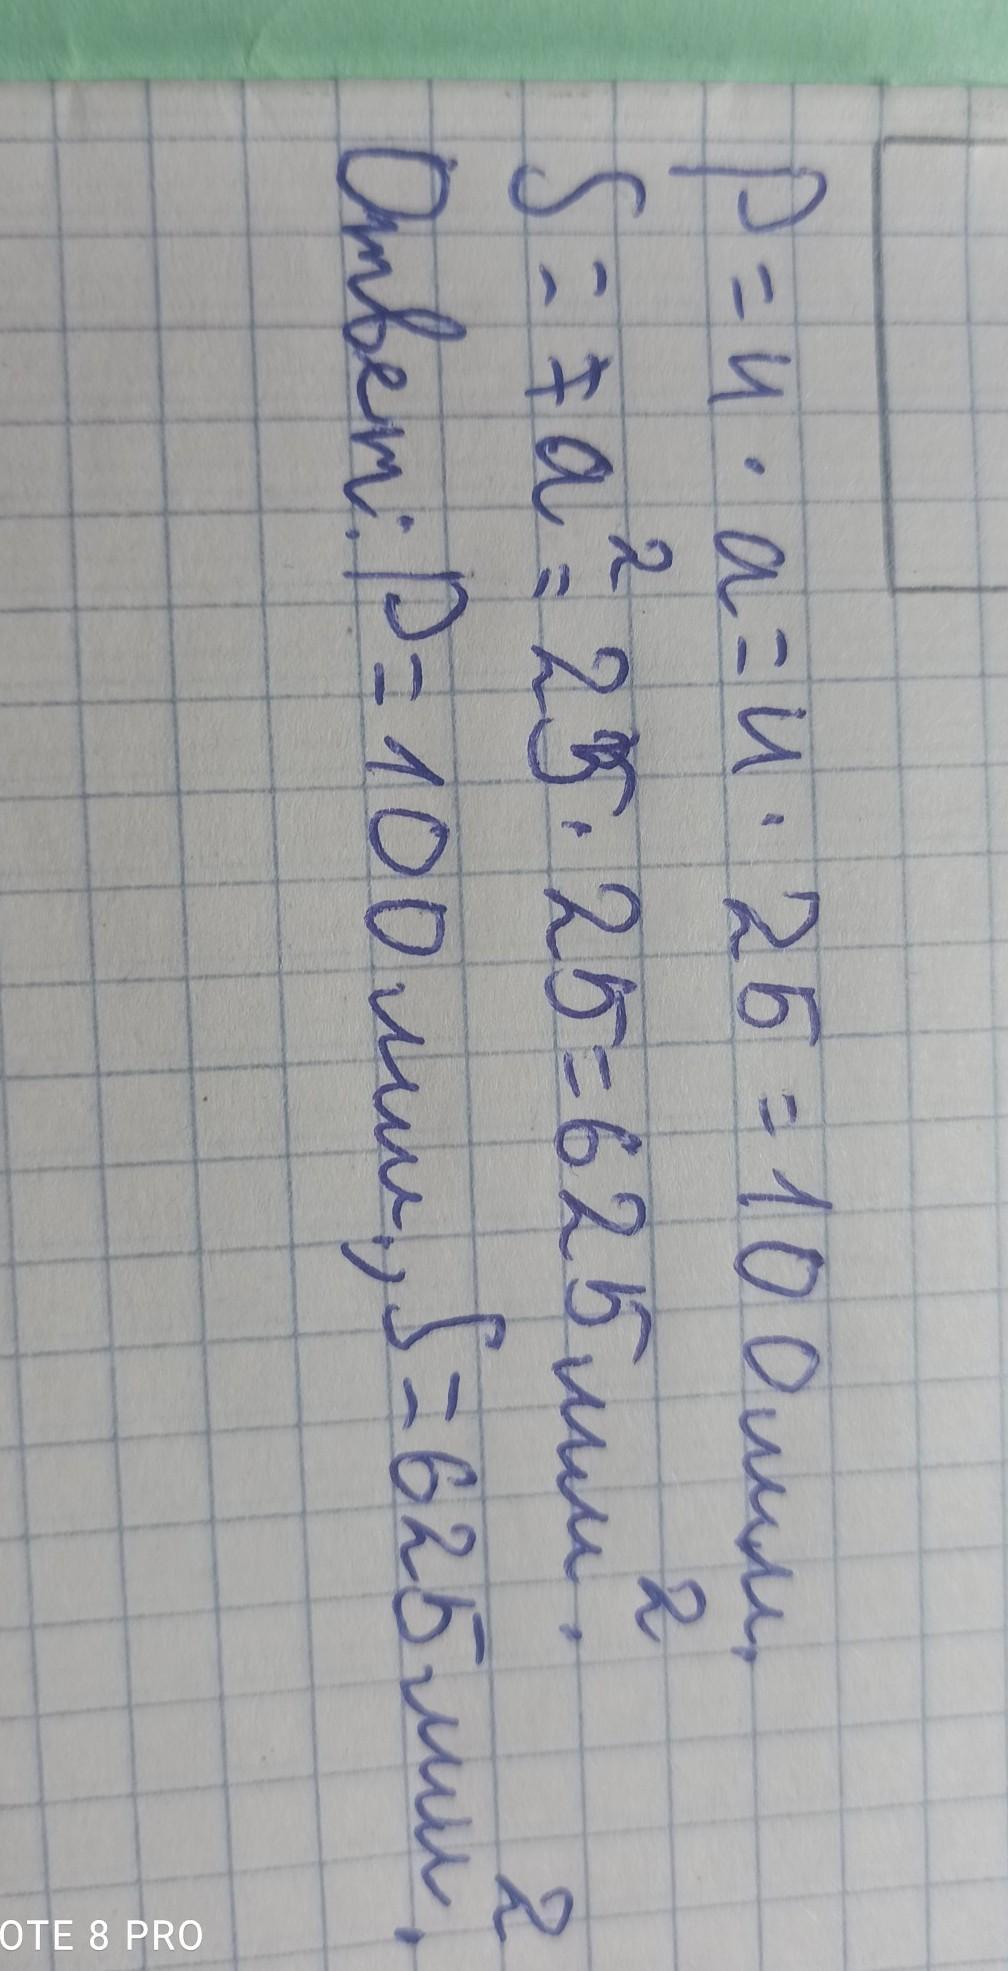 P = 4 · a = 4 · 25 = 100 мм.
S = a² = 25 · 25 = 625 мм².
Ответ: P = 100 мм, S = 625 мм².
OTE 8 PRO